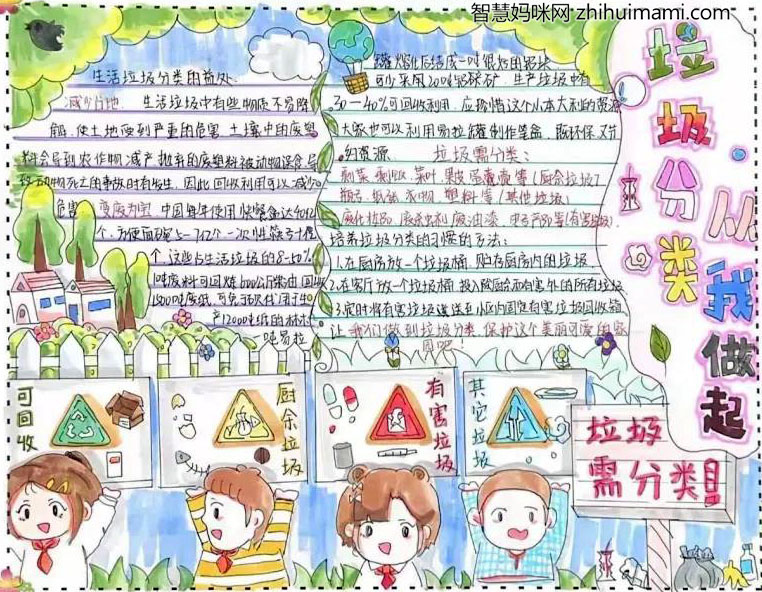 智慧妈咪网 zhihuimami.com
垃圾分类
从我做起
生活垃圾分类的益处
减少占地 生活垃圾中有些物质不易降
解,使土地受到严重的危害 土壤中的废塑
料会导致农作物减产 抛弃的废塑料被动物误食,导
致动物死亡的事故时有发生,因此回收利用可以减少
危害 变废为宝 中国每年使用快餐盒达40亿
个,方便面碗 5-7亿个 一次性筷
个,这些占生活垃圾的8-15%
吨废料可回炼600公斤柴油 回收
1500吨废纸,可免于砍伐用于生
产1200吨纸的林木
吨易拉
罐熔化后结成一吨很好的铝块
可少采20吨铝矿 生产垃圾中有
30—40%可回收利用,应珍惜这个小本大利的资源
大家也可以利用易拉罐制作笔盒,既环保,又节
约资源 垃圾需分类:
剩菜 剩饭 菜叶 果皮 蛋壳 等(厨余垃圾)
瓶子 纸张 衣物 塑料等(其他垃圾)
废化妆品 废杀虫剂 废油漆 电子产品等(有害垃圾)
培养垃圾分类的习惯的方法:
1.在厨房放一个垃圾桶,贮存厨房内的垃圾
2.在客厅放个垃圾桶 投入除厨余和有害外的所有垃圾
3.定时将有害垃圾运送至小区内固定有害垃圾回收箱
让我们做到垃圾分类 保护这个美丽可爱的家
园吧!
可回收
厨余垃圾
有害垃圾
其它垃圾
垃圾
需分类